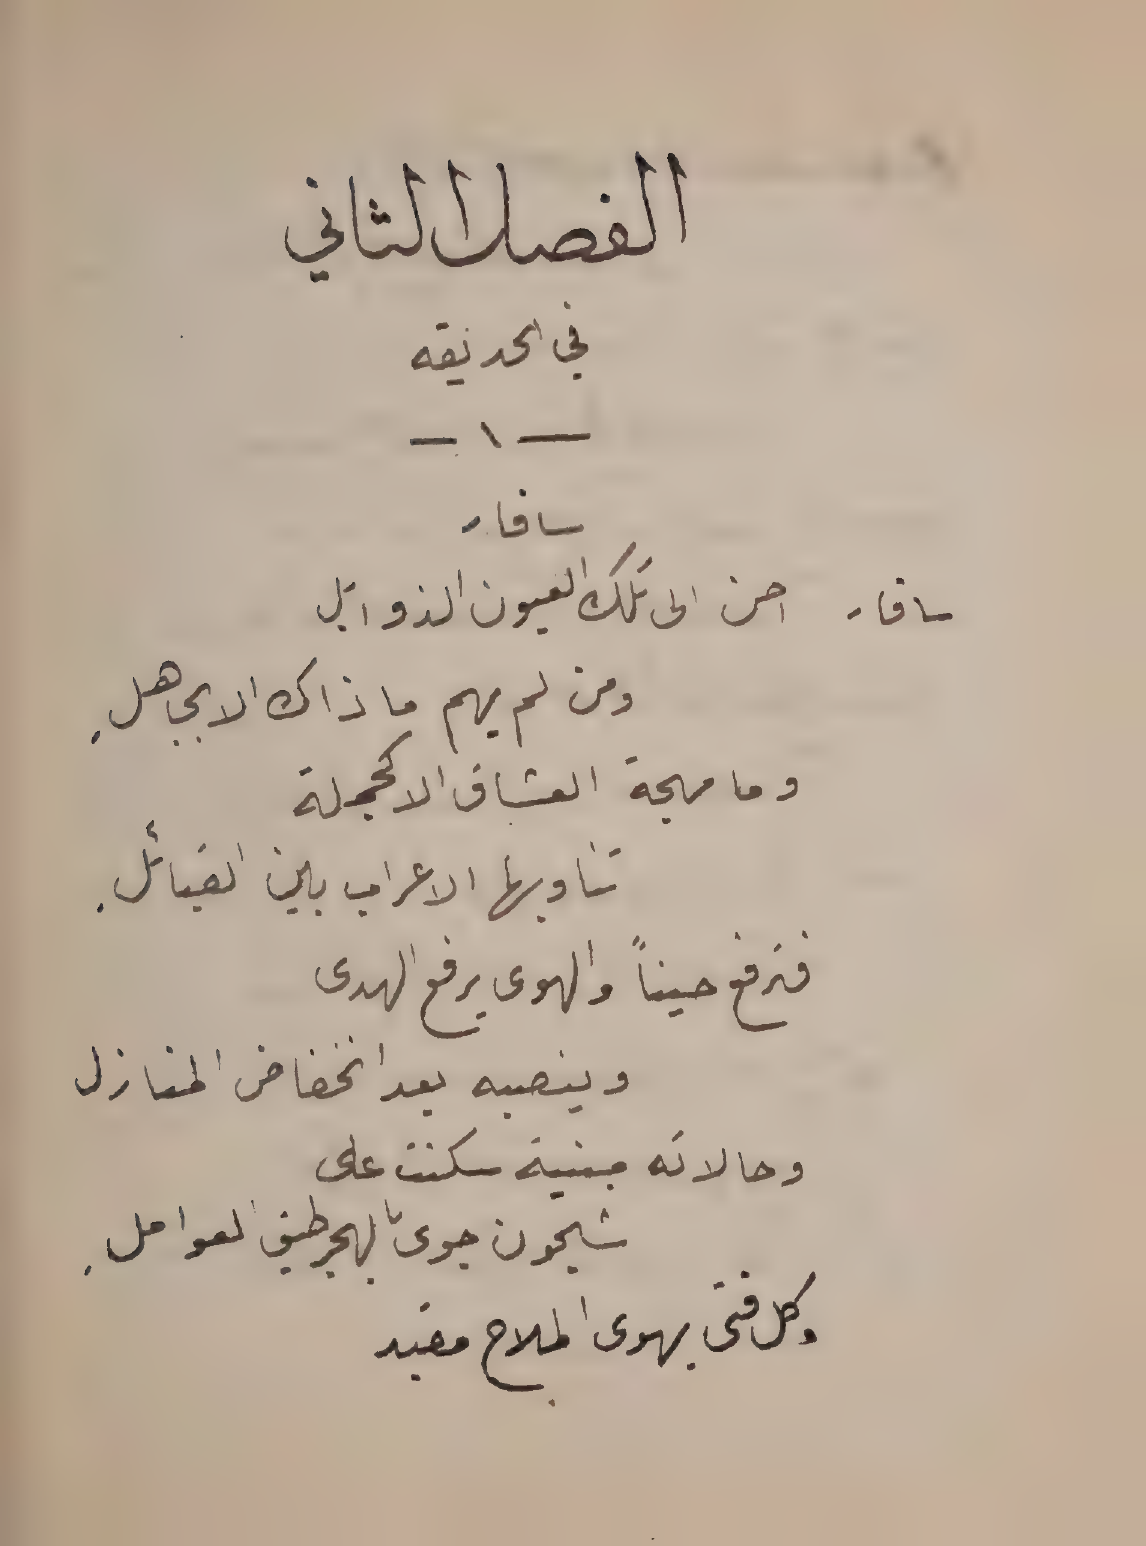 الفصل الثاني
في الحديقه
— ١ —
سافار
سافار احن الى تلك العيون الذوابل
ومن لم يهم ما ذاك الا بجاهل.
وما مهجة العشاق الا كجملة
تناوبها الاعراب بين القبائل.
فترفع حيناً والهوى يرفع الهدى
وينصبه بعد انخفاض المنازل
وحالاته مبنية سكنت على
شجون جوى بالهجر طبق العوامل.
وكل فتى يهوى الملاح مقيد